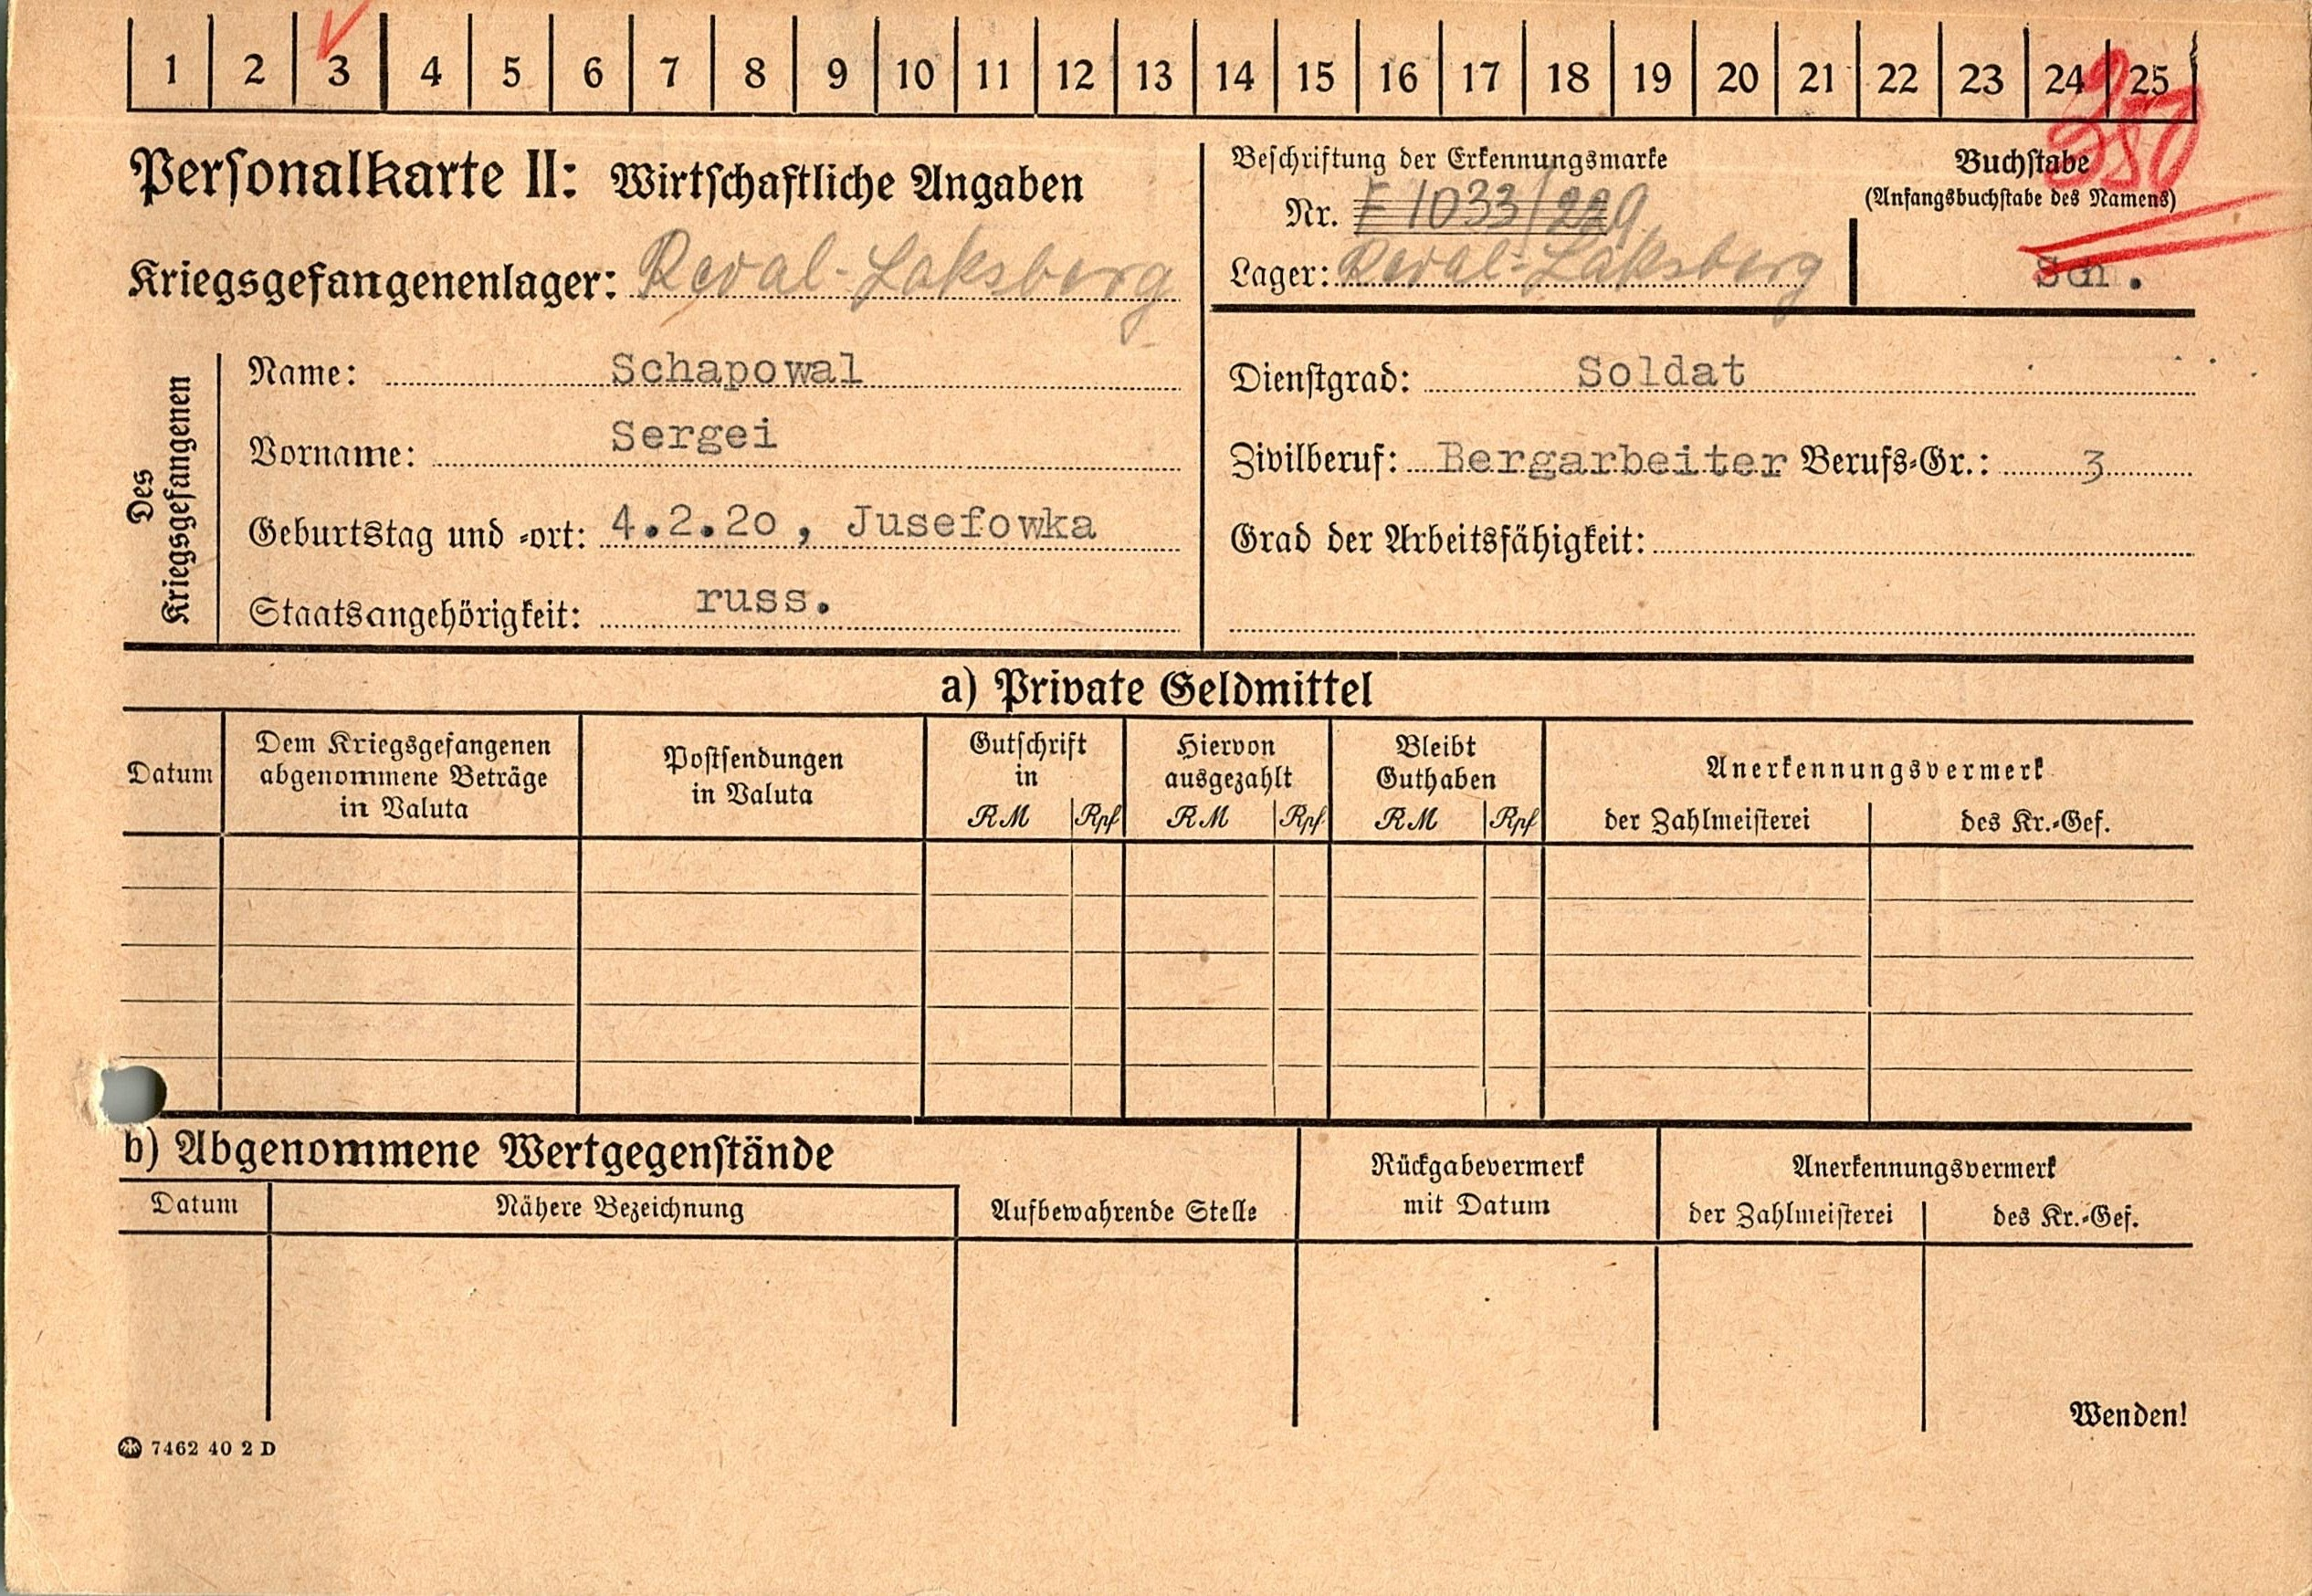 1 2 3 4 5 6 7 8 9 10 11 12 13 14 15 16 17 18 19 20 21 22 23 24 25
Personalkarte II: Wirtschaftliche Angaben
Kriegsgefangenenlager: Reval-Laksberg
Beschriftung der Erkennungsmarke
Nr. 1033/229
Lager: Reval-Laksberg
Buchstabe
(Anfangsbuchstabe des Namens)
Sch.
Des
Kriegsgefangenen
Name: Schapowal
Vorname: Sergei
Geburtstag und -ort: 4.2.20, Jusefowka
Staatsangehörigkeit: russ.
Dienstgrad: Soldat
Zivilberuf: Bergarbeiter Berufs-Gr.: 3
Grad der Arbeitsfähigkeit:
a) Private Geldmittel
Datum
Dem Kriegsgefangenen
abgenommene Beträge
in Valuta
Postsendungen
in Valuta
Gutschrift
in
RM Rpf
Hiervon
ausgezahlt
RM Rpf
Bleibt
Guthaben
RM Rpf
Anerkennungsvermerk
der Zahlmeisterei des Kr.-Gef.
b) Abgenommene Wertgegenstände
Datum Nähere Bezeichnung
Aufbewahrende Stelle
Rückgabevermerk
mit Datum
Anerkennungsvermerk
der Zahlmeisterei des Kr.-Gef.
Wenden!
7462 40 2 D